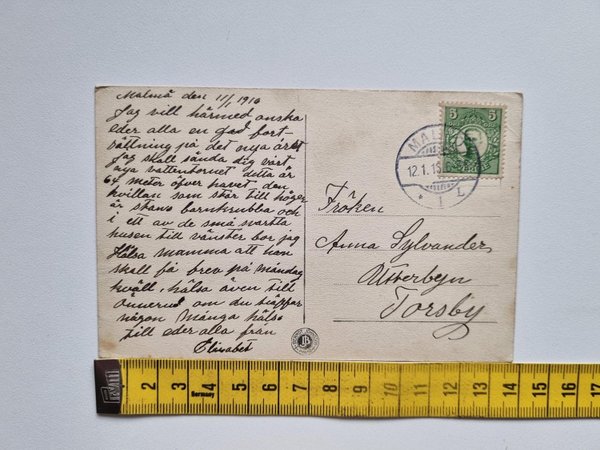 Malmö den 11/1 1916
Jag vill härmed önska
eder alla en god fort
sättning på det nya året
Jag skall sända dig vårt
nya vattentornet detta är
64 meter öfver havet den
kvillan som står till höger
är stans barnkrubba och
i ett av de små svarta
husen till vänster bor jag
Hälsa Mamma att hon
skall få brev på måndag
kväll, hälsa även till
om du träffar
någon Många häls
till eder alla från
Elisabet
5 5
MAL
12.1.16
* 1 L
Fröken
Anna Sylvander
Utterbyn
Torsby
1 2 3 4 5 6 7 8 9 10 11 12 13 14 15 16 17
Germany